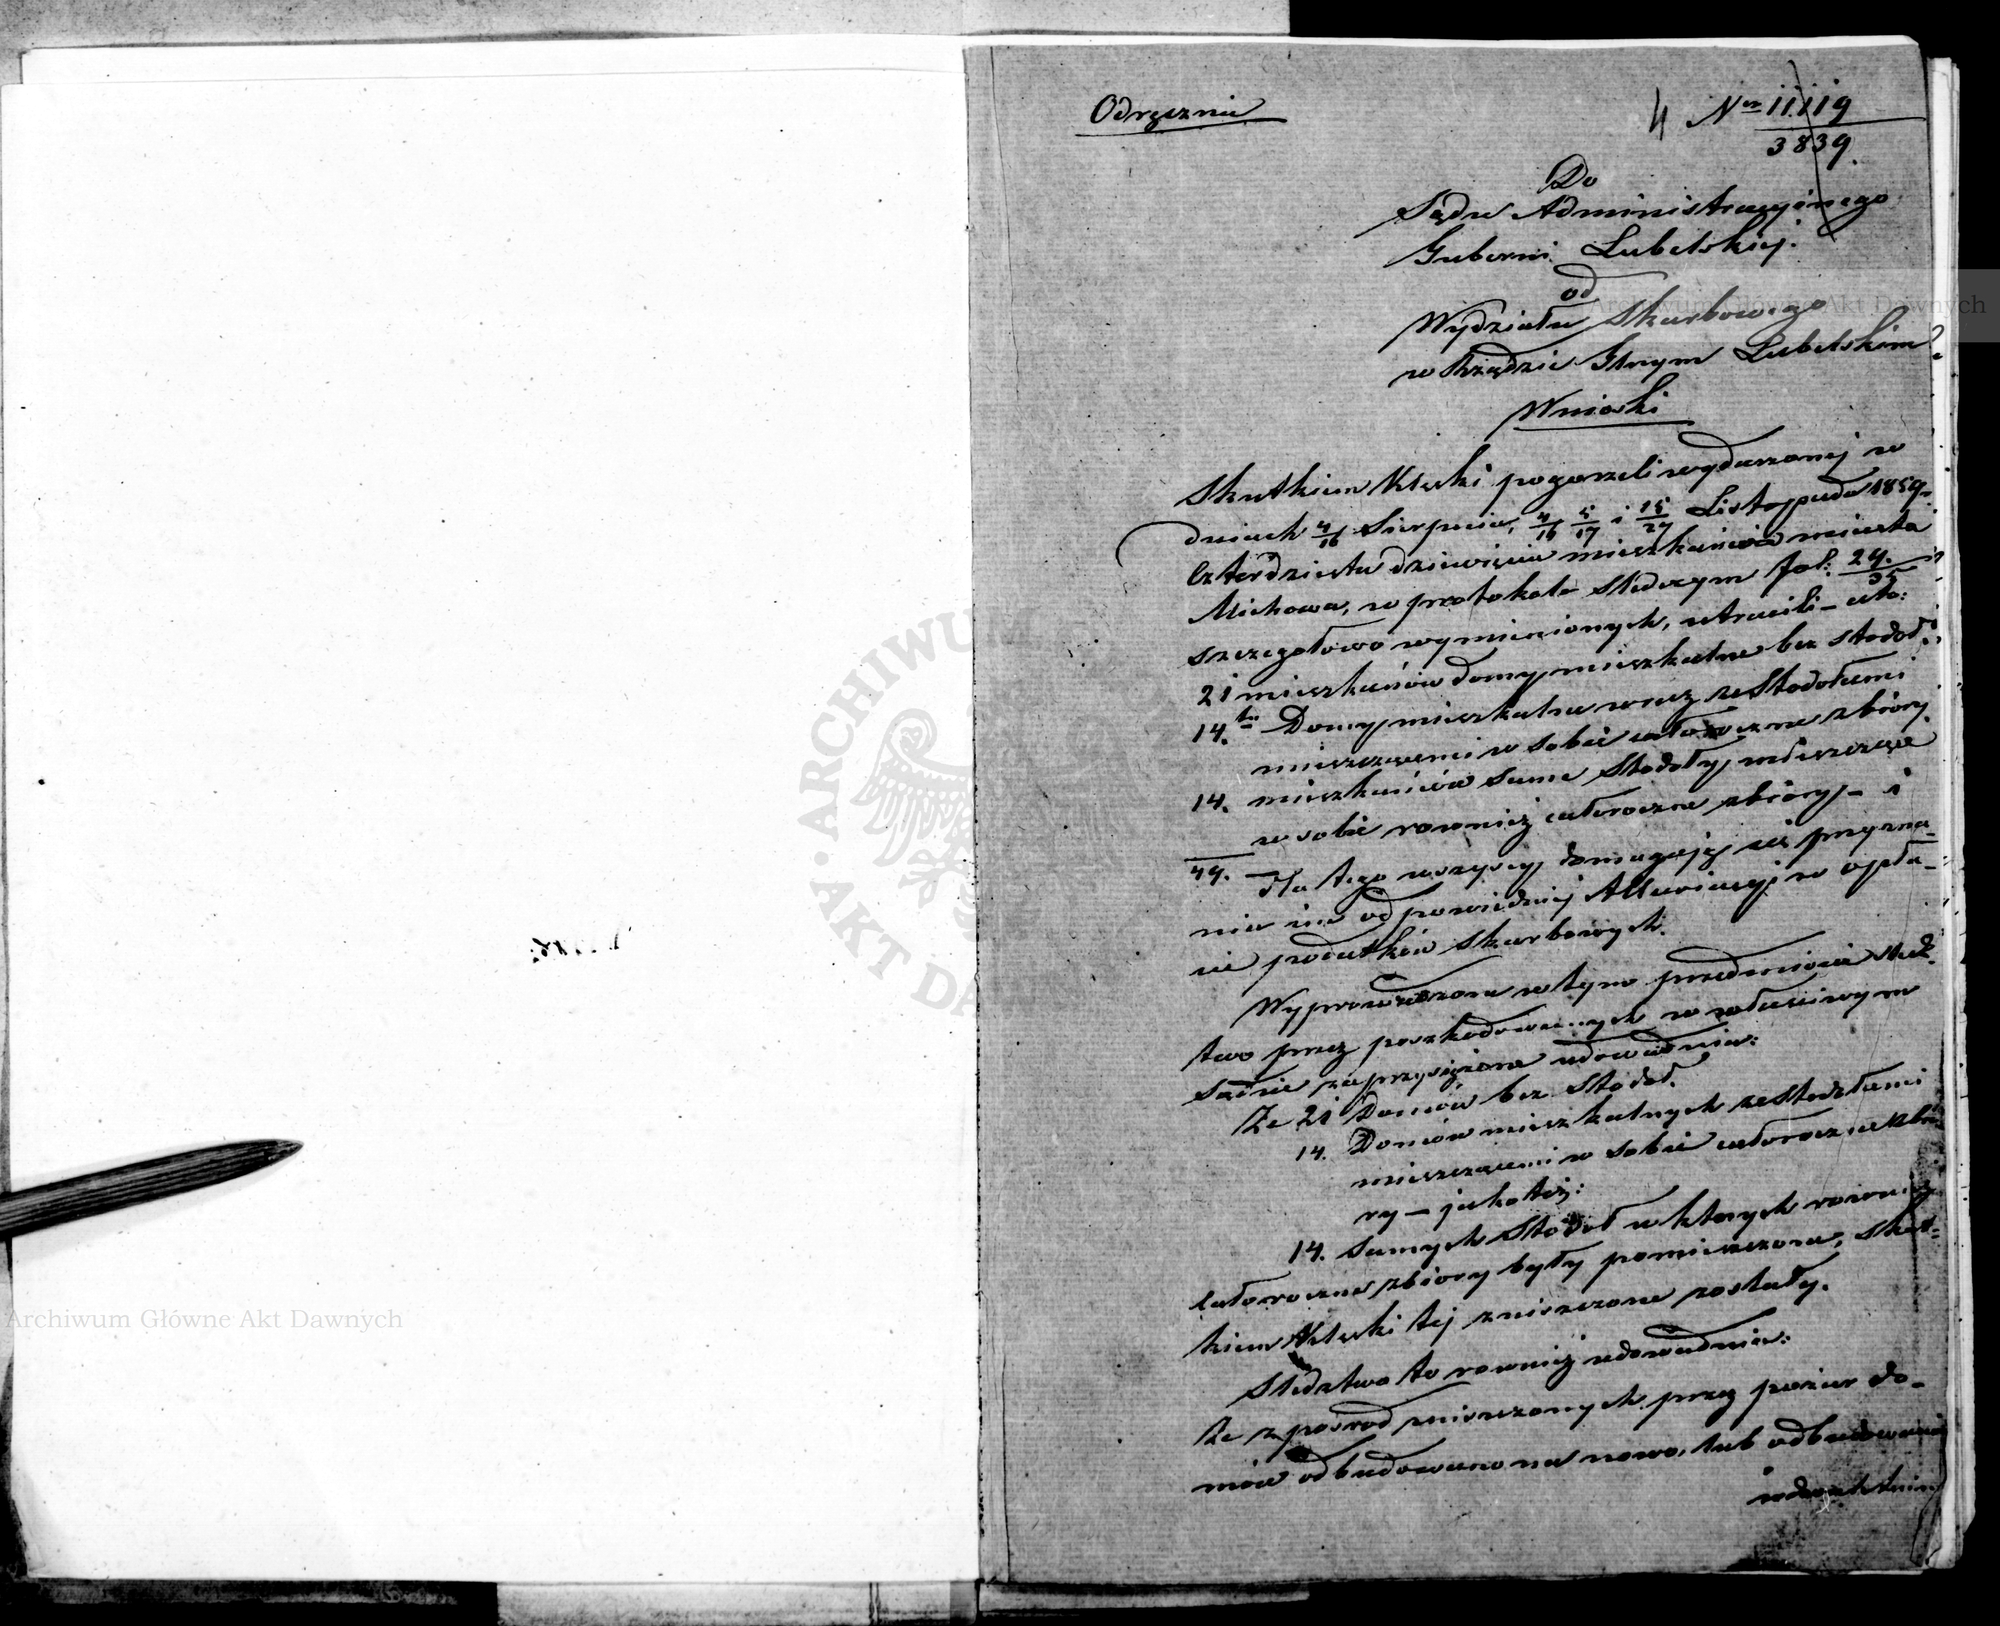 Odręcznie
4 Nro 11119
3839.
Do
Sądu Administracyjnego
Guberni Lubelskiej.
od
Wydziału Skarbowego
w Rządzie Glnym Lubelskim
Wnioski
Skutkiem klęski pogorzeli wydarzonej w
dniach 4/16 Sierpnia, 4/16 5/17 i 15/27 Listopada 1859.
czterdziestu dziewięciu mieszkańców miasta
Michowa, w protokole śledczym fol: 24./35
szczegółowo wymienionych, utracili – ato:
21 mieszkańców domy mieszkalne bez stodoł
14.tu Domy mieszkalne wraz ze Stodołami
mieszczącemi w sobie całoroczne zbiory
14. mieszkańców same Stodoły, mieszczące
w sobie rownież całoroczne zbiory – i
49. – dla tego wszyscy domagają się przyzna-
nia im odpowiedniej Allewiacyi w opła-
cie podatków Skarbowych.
Wyprowadzone w tym przedmiocie śledz-
two przez poszkodowanych w właściwym
Sądzie zaprzysiężone udowadnia:
Że 21 Domów bez Stodoł.
14. Domów mieszkalnych ze Stodołami
mieszczącemi w sobie całoroczne zbio-
ry – jakoteż:
14. Samych Stodoł w ktorych rownież
całoroczne zbiory były pomieszczone, skut-
kiem klęski tej zniszczone zostały.
Śledztwo to rownież udowadnia:
że z posrod zniszczonych przez pożar do-
mów odbudowano na nowo, lub odbudowanie
Archiwum Główne Akt Dawnych
Archiwum Główne Akt Dawnych
ARCHIWUM
AKT DAW